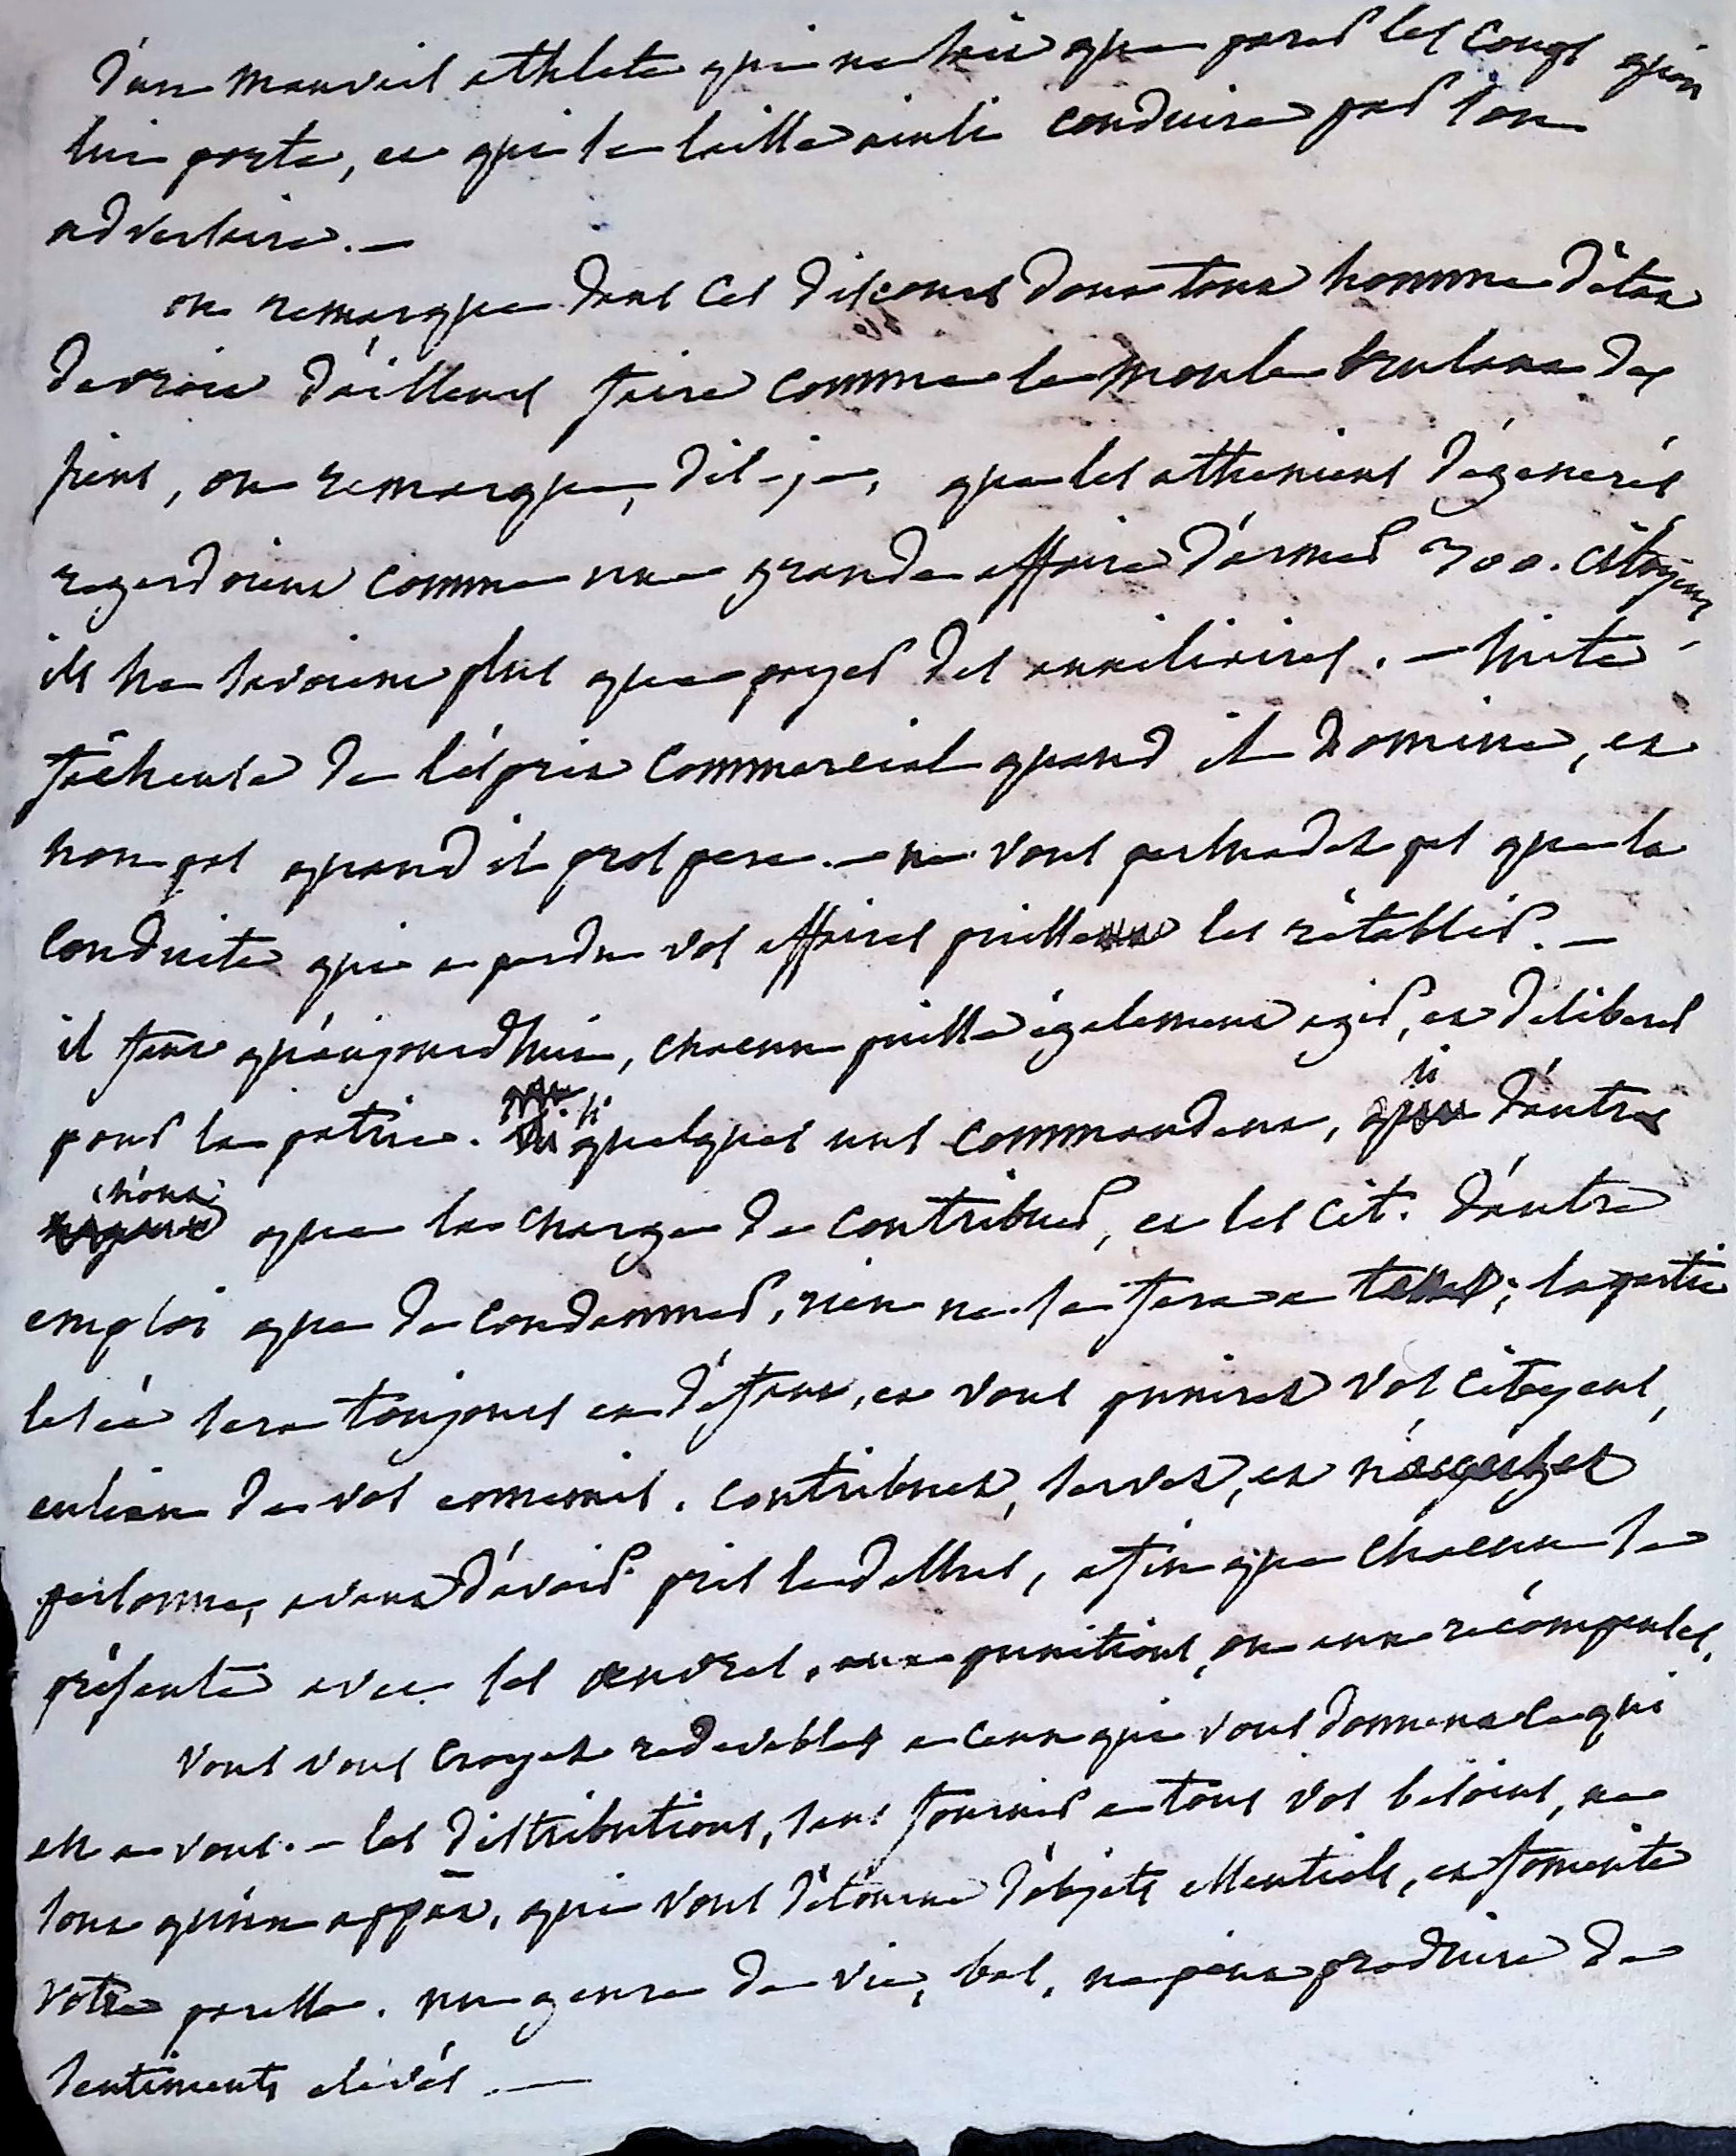 d'un mauvais athlete qui ne sait que parer les coups qu'on
lui porte, et qui se laisse ainsi conduire par son
adversaire. —
on remarque dans ces discours dont tout homme d'état
devroit d'ailleurs faire comme le moule brulant des
siens, on remarque, dis-je, que les atheniens dégenerés
regardoient comme une grande affaire d'armer 300. citoyens,
ils ne savoient plus que payer des auxiliaires. — suite
fâcheuse de l'ésprit commercial quand il domine, et
non pas quand il prospere. — ne vous persuadez pas que la
conduite qui a perdu vos affaires puisse les rétablir. —
il faut qu'aujourdhui, chacun puisse également agir, et deliberer
pour la patrie. si quelques uns commandent, si d'autres
n'ont que la charge de contribuer, et les cit. d'autre
emploi que de condamner, rien ne se fera a tems; la partie
lesée sera toujours en défaut, et vous punirez vos citoyens,
au lieu de vos ennemis. contribuez, servez, et n'accusez
personne, avant d'avoir pris le dessus, afin que chacun se
présente avec ses œuvres, aux punitions, ou aux récompenses.
vous vous croyez redevables a ceux qui vous donnent ce qui
est a vous. — les distributions, sans fournir a tous vos besoins, ne
sont qu'un appât, qui vous détourne d'objets essentiels, et fomente
votre paresse. un genre de vie, bas, ne peut produire de
sentiments elevés —